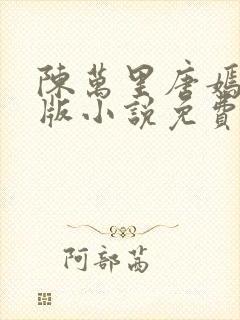 陳萬里唐嫣
版小說免費
阿部茜